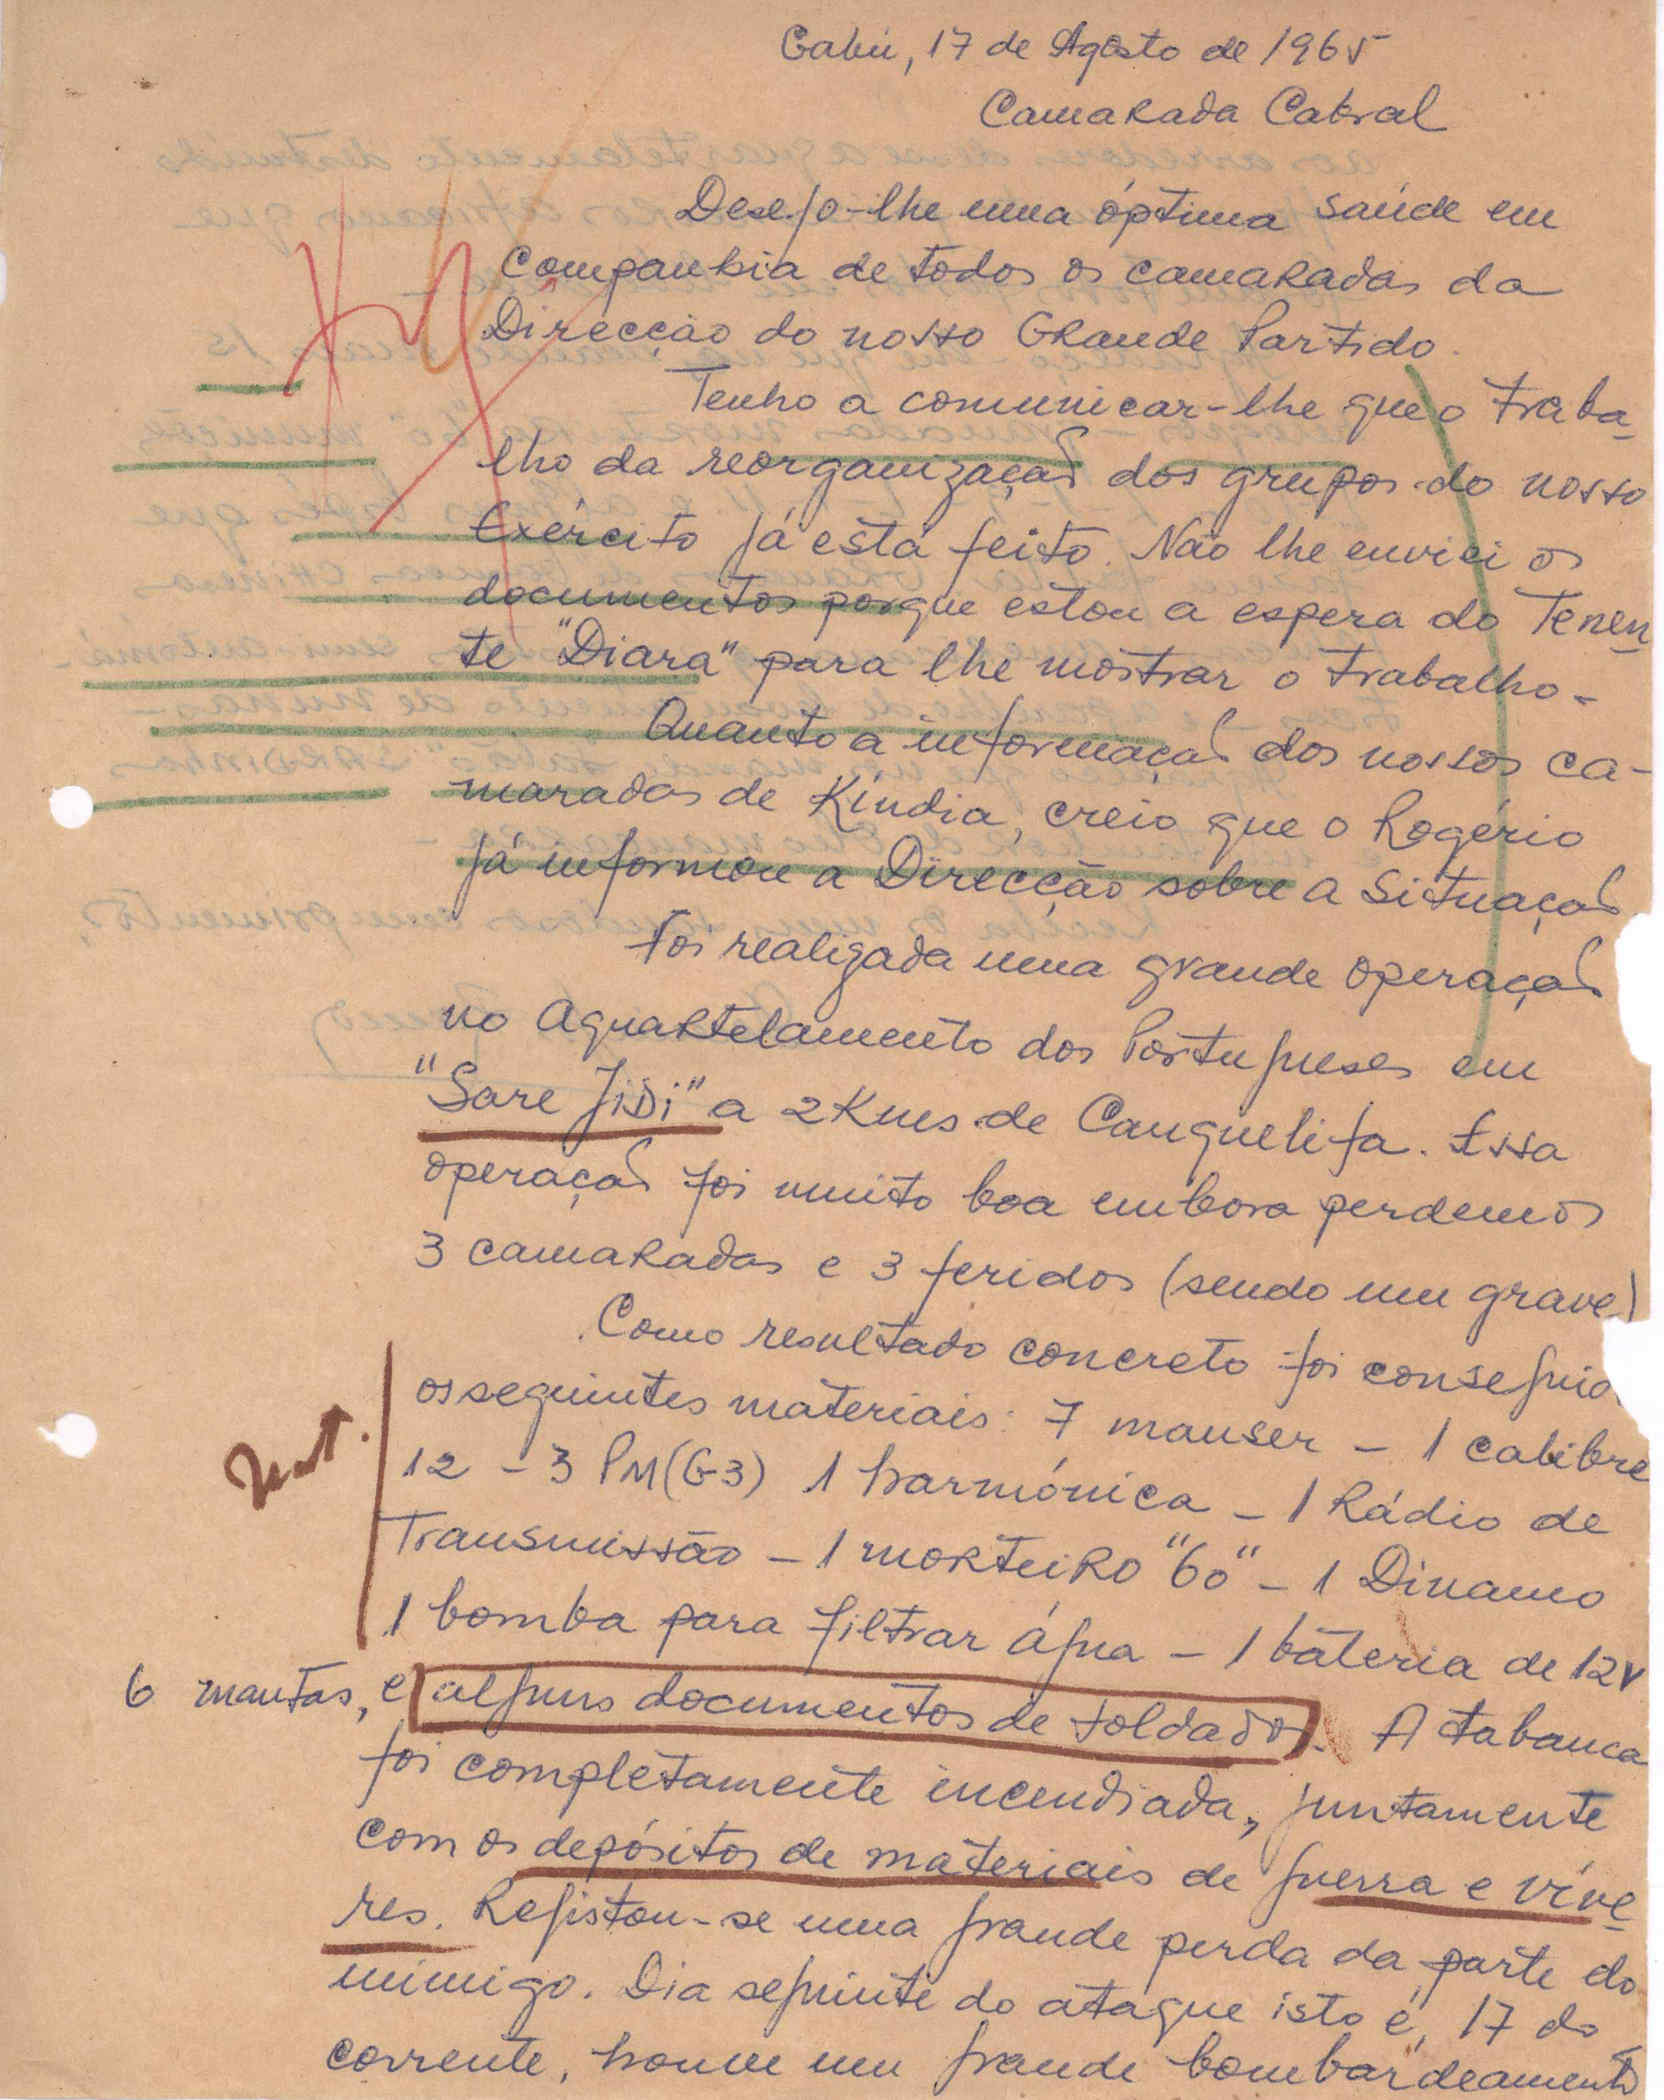 Gabú, 17 de Agosto de 1965
Camarada Cabral
Desejo-lhe uma óptima saúde em
companhia de todos os camaradas da
Direcção do nosso Grande Partido.
Tenho a comunicar-lhe que o traba-
lho da reorganização dos grupos do nosso
Exército já está feito. Não lhe enviei os
documentos porque estou a espera do Tenen-
te "Diara" para lhe mostrar o trabalho.
Quanto a informação dos nossos ca-
maradas de Kíndia, creio que o Rogério
já informou a Direcção sobre a situação
Foi realizada uma grande operação
no aquartelamento dos Portugueses em
"Sare JiDi" a 2 Kms de Canquelifa. Essa
operação foi muito boa embora perdemos
3 camaradas e 3 feridos (sendo um grave)
Como resultado concreto foi conseguido
os seguintes materiais: 7 mauser - 1 calibre
12 - 3 PM (G-3) 1 harmónica - 1 Rádio de
Transmissão - 1 morteiro "60" - 1 Dinamo
1 bomba para filtrar água - 1 bateria de 12V
6 mantas, e alguns documentos de soldados. A tabanca
foi completamente incendiada, juntamente
com os depósitos de materiais de guerra e víve-
res. Registou-se uma grande perda da parte do
inimigo. Dia seguinte do ataque isto é, 17 do
corrente, houve um grande bombardeamento